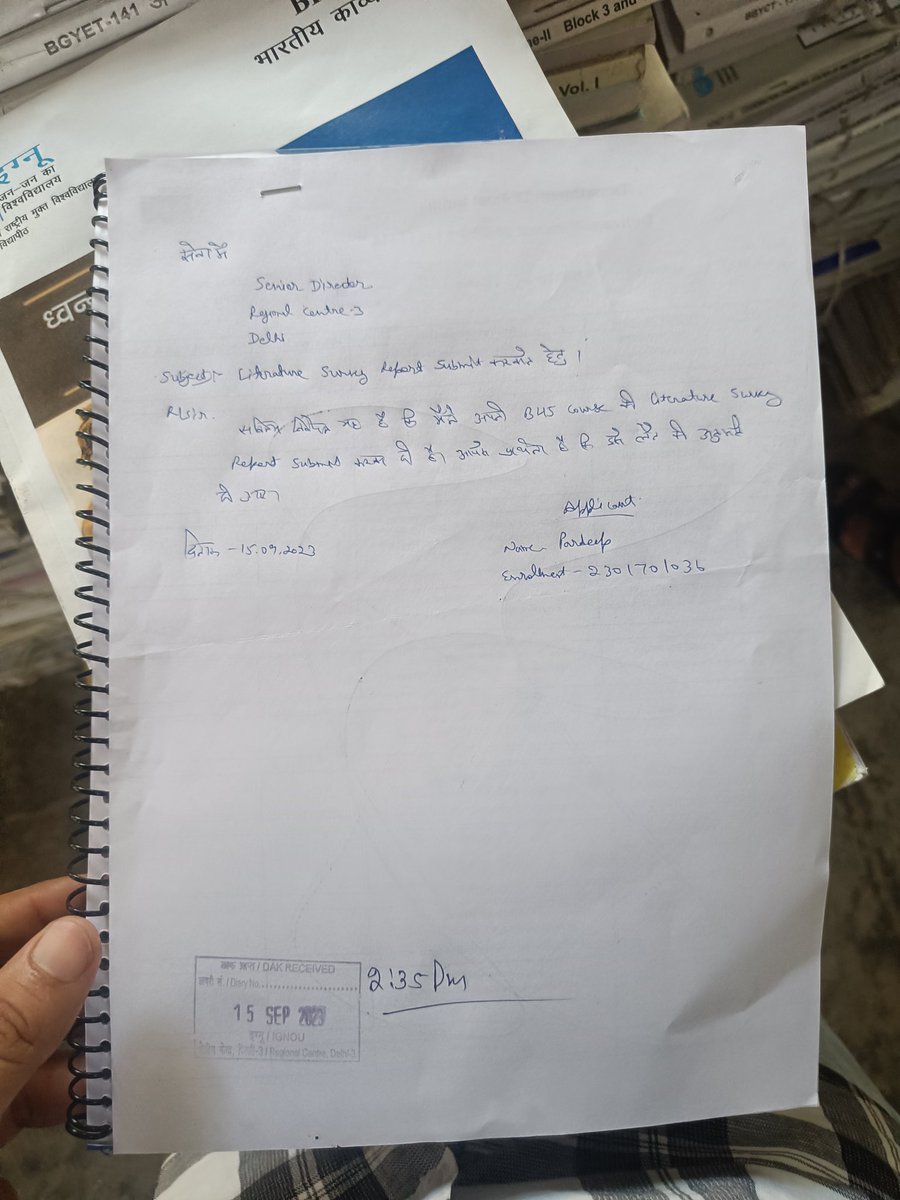 BGYET-141
भारतीय काव्य
Block 3 and
Vol. I
III
इग्नू
जन-जन का
विश्वविद्यालय
राष्ट्रीय मुक्त विश्वविद्याल
विद्यापीठ
ध्वन
सेवा में
Senior Director
Regional Centre-3
Delhi
Subject:- Literature Survey Report Submit करवाने हेतु ।
R/sir.
सविनय निवेदन यह है कि मैंने अपनी course में Literature Survey
Report Submit है। आपसे प्रार्थना है कि लेने की अनुमति
दी जाए।
Applicant
दिनांक -15.09.2023
Name- Pardeep
Enrollment - 2301701036
डाक प्राप्त / DAK RECEIVED
डायरी सं. / Diary No.
15 SEP 2023
इग्नू / IGNOU
क्षेत्रीय केन्द्र, दिल्ली-3 / Regional Centre, Delhi-3
2:35 Pm